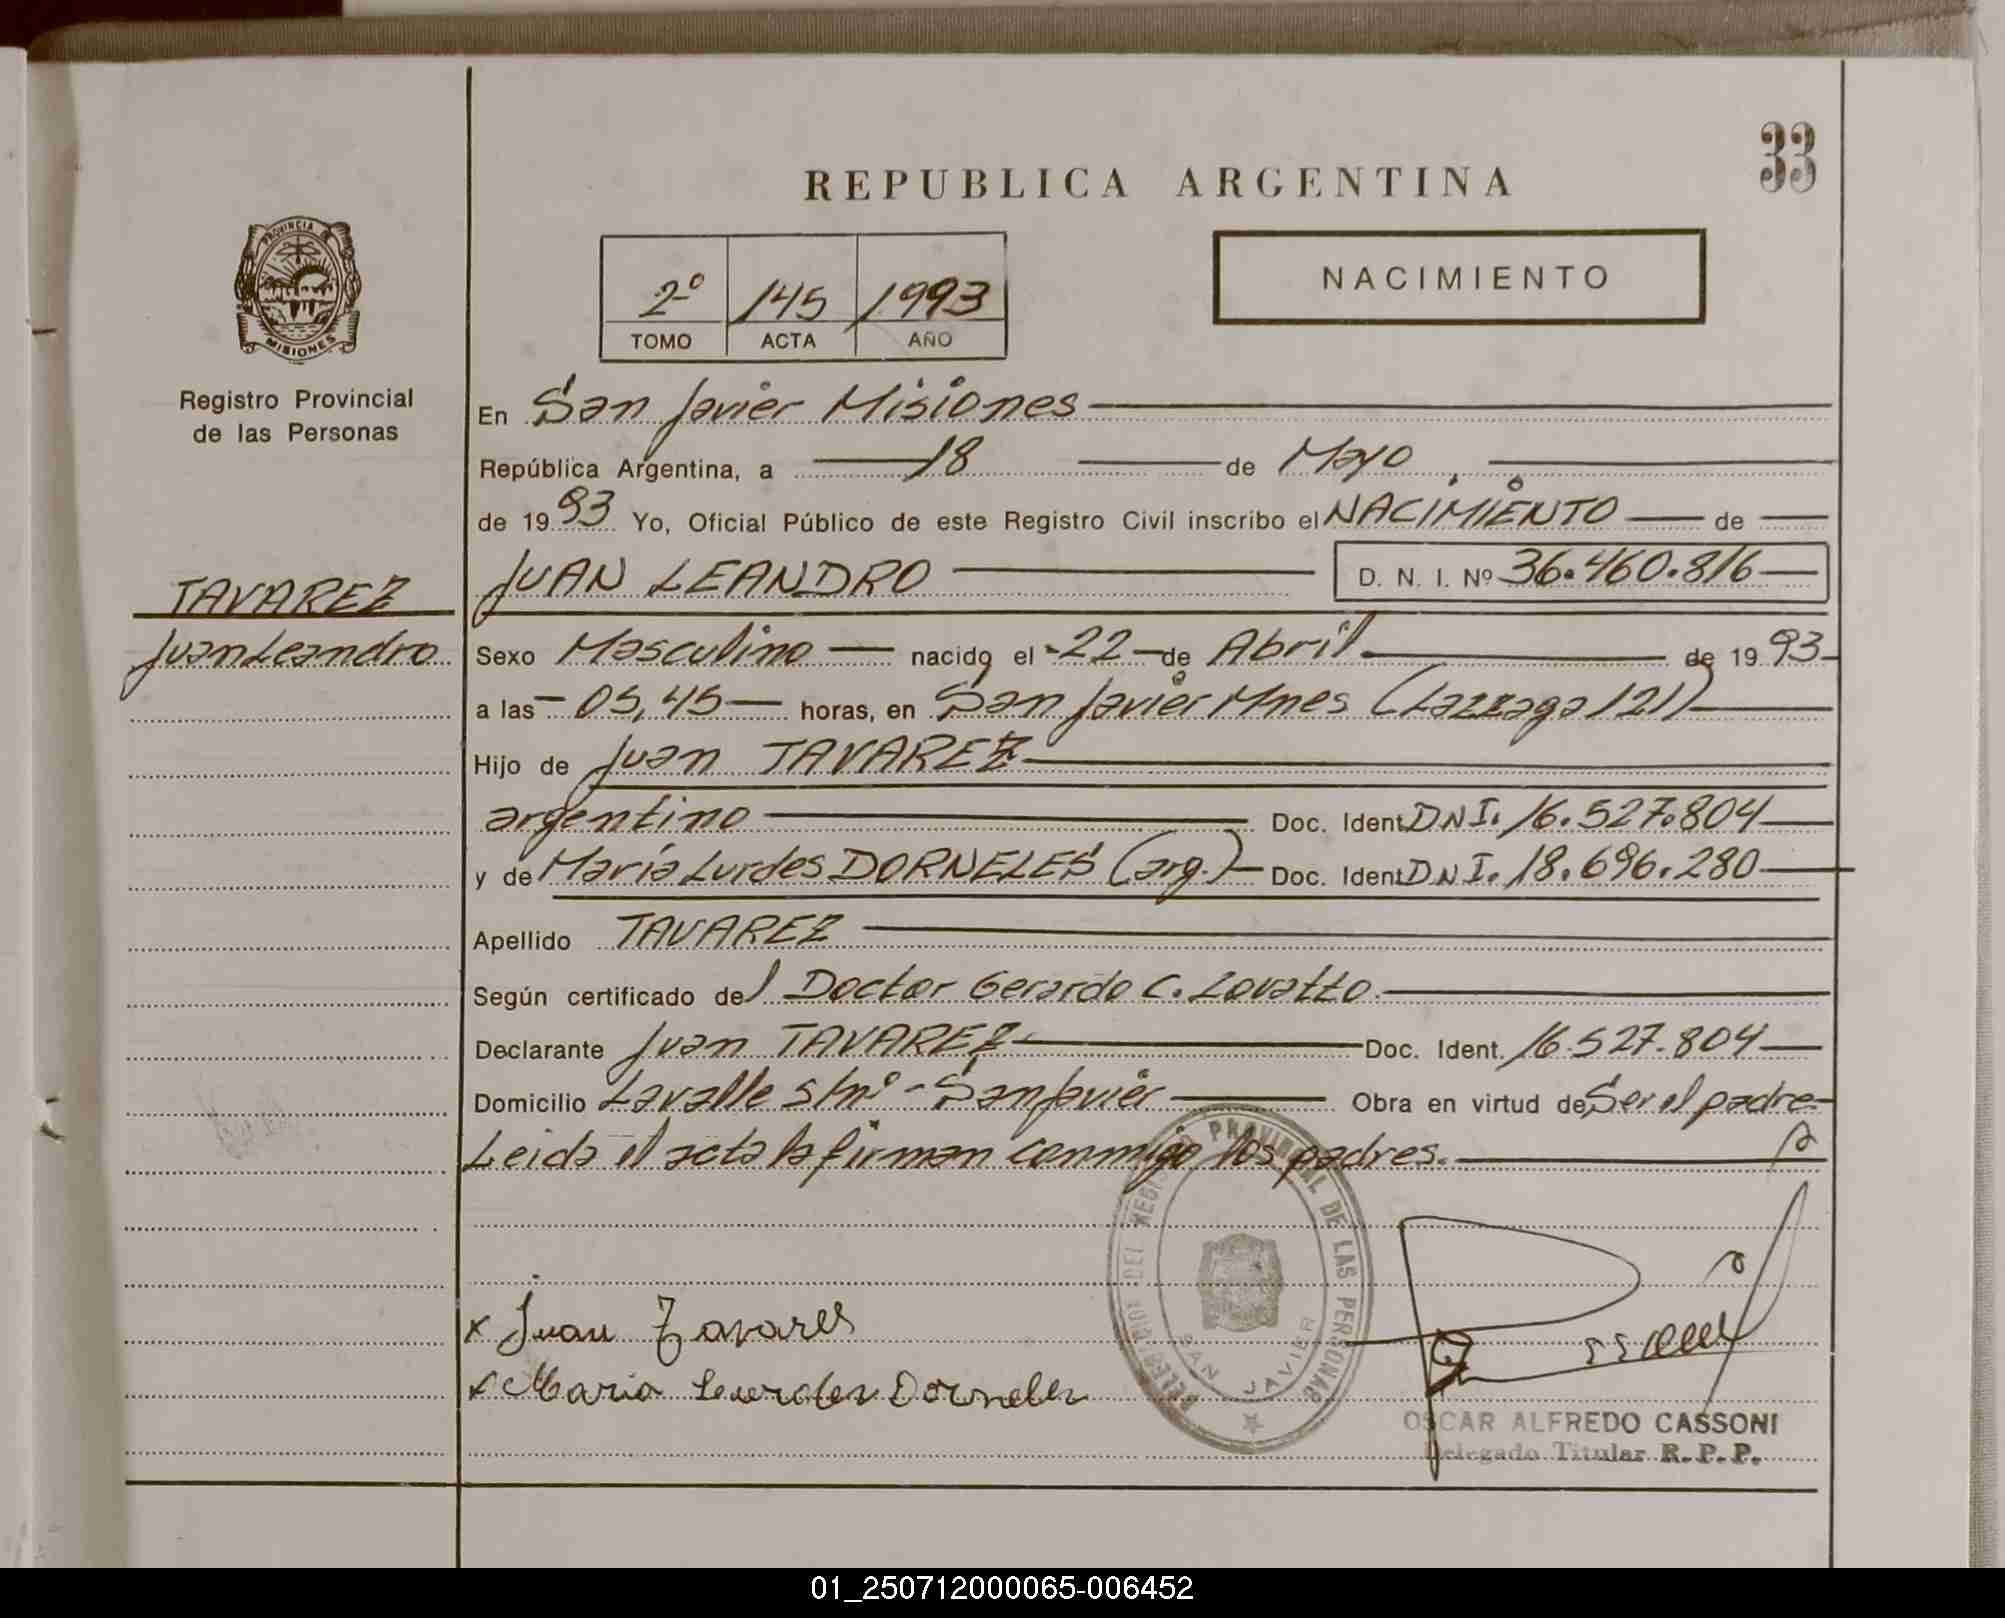 33
REPUBLICA ARGENTINA
PROVINCIA DE
MISIONES
NACIMIENTO
2º 145 1993
TOMO ACTA AÑO
Registro Provincial
de las Personas
En San Javier Misiones
República Argentina, a 18 de Mayo
de 1993 Yo, Oficial Público de este Registro Civil inscribo el NACIMIENTO de
TAVAREZ
Juan Leandro
JUAN LEANDRO D. N. I. Nº 36.460.816
Sexo Masculino nacido el 22 de Abril de 1993
a las 05,45 horas, en San Javier Mnes (Lazzaga 121)
Hijo de Juan TAVAREZ
argentino Doc. Ident DNI. 16.527.804
y de María Lurdes DORNELES (arg.) Doc. Ident DNI. 18.696.280
Apellido TAVAREZ
Según certificado del Doctor Gerardo C. Lovatto
Declarante Juan TAVAREZ Doc. Ident. 16.527.804
Domicilio Lavalle s/nº - San Javier Obra en virtud de Ser el padre
Leida el acta la firman conmigo los padres.
DELEGACION DEL REGISTRO PROVINCIAL DE LAS PERSONAS
SAN JAVIER
x Juan Tavares
x Maria Lurdes Dorneles
OSCAR ALFREDO CASSONI
Delegado Titular R.P.P.
01_250712000065-006452